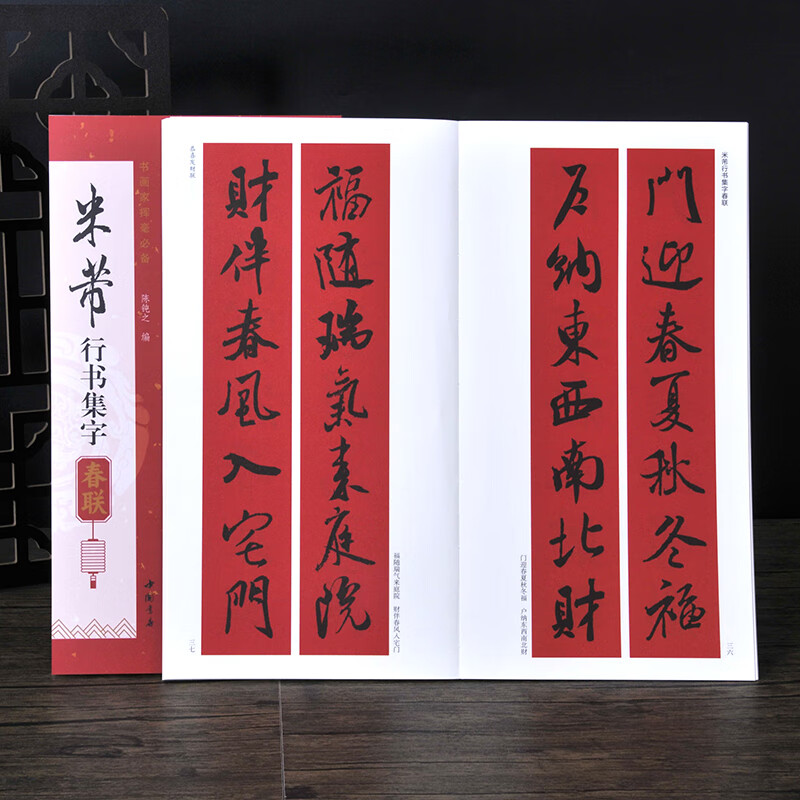 书画家挥毫必备
米芾
行书集字
春联
陈艳之 编
中国书店
米芾行书集字春联
門迎春夏秋冬福
户納東西南北財
门迎春夏秋冬福 户纳东西南北财
三六
福随瑞氣來庭院
財伴春風入宅門
福随瑞气来庭院 财伴春风入宅门
恭喜发财联
三七